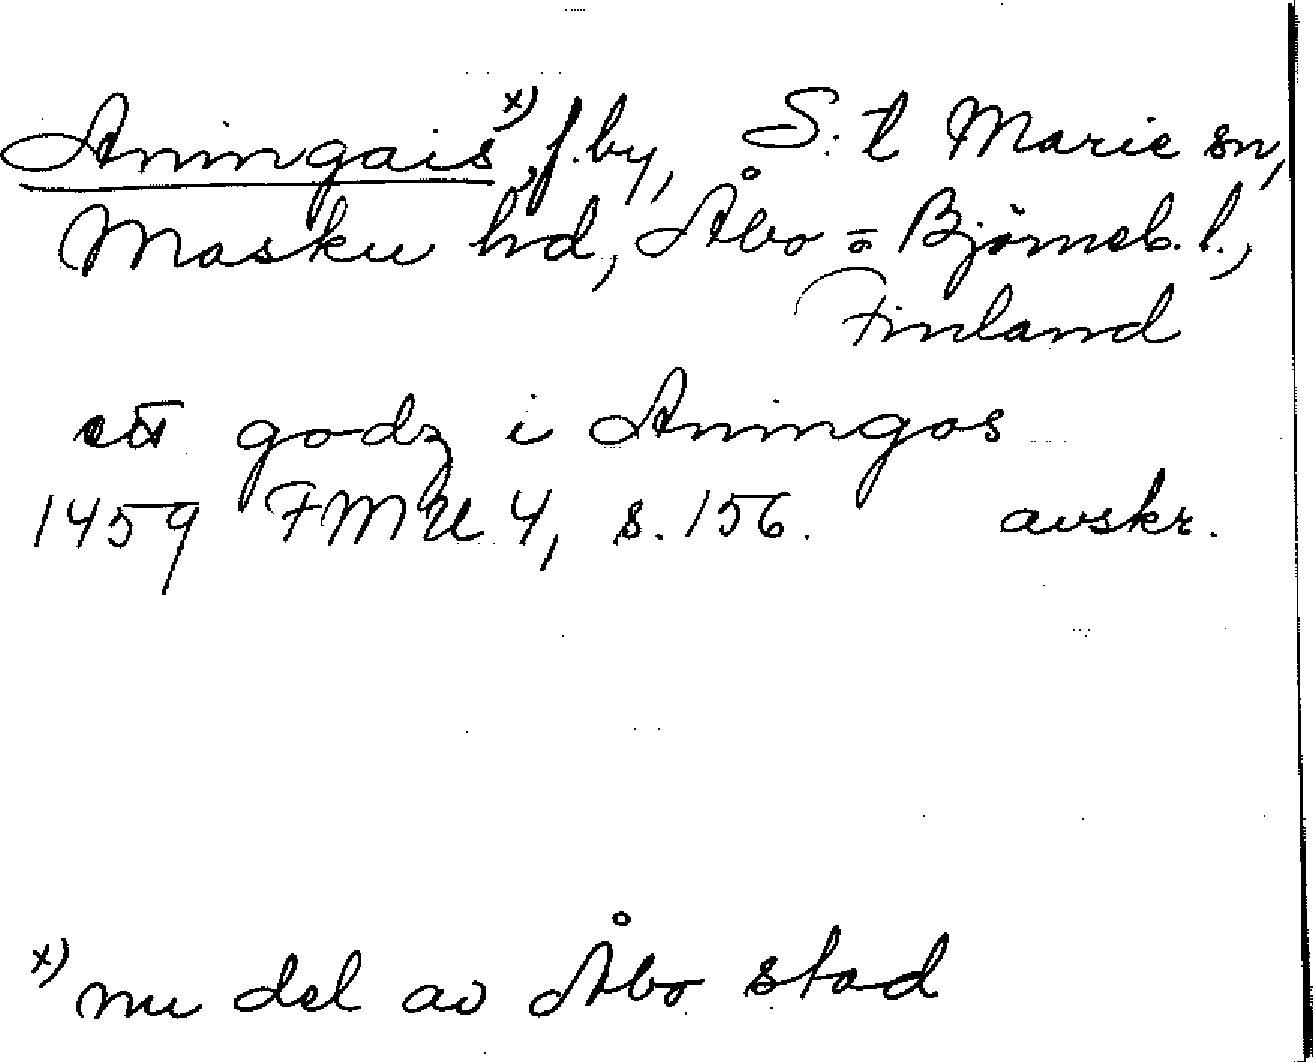 Aningais x), f. by, S:t Marie sn,
Masku hd, Åbo = Björneb. l.,
Finland
ett godz i Aningos
1459 FMU 4, s. 156. avskr.
x) nu del av Åbo stad